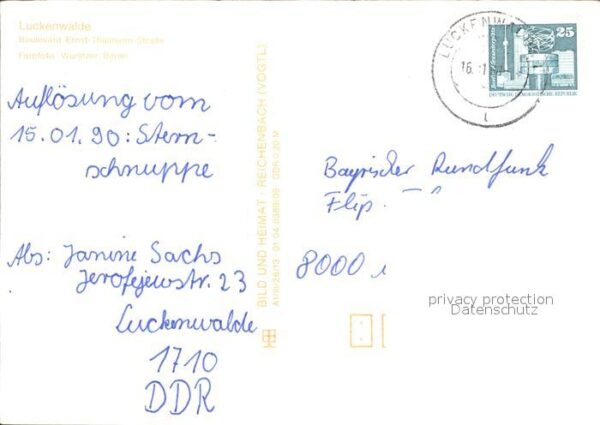 Luckenwalde
Boulevard Ernst-Thälmann-Straße
Farbfoto: Würlitzer, Berlin
Auflösung vom
15.01.90: Stern-
schnuppe
Abs: Janine Sachs
Jerofejewstr. 23
Luckenwalde
1710
DDR
BILD UND HEIMAT · REICHENBACH (VOGTL)
LUCKENWAL
16.
25
DEUTSCHE DEMOKRATISCHE REPUBLIK
Bayrischer Rundfunk
Flip
8000
privacy protection
Datenschutz